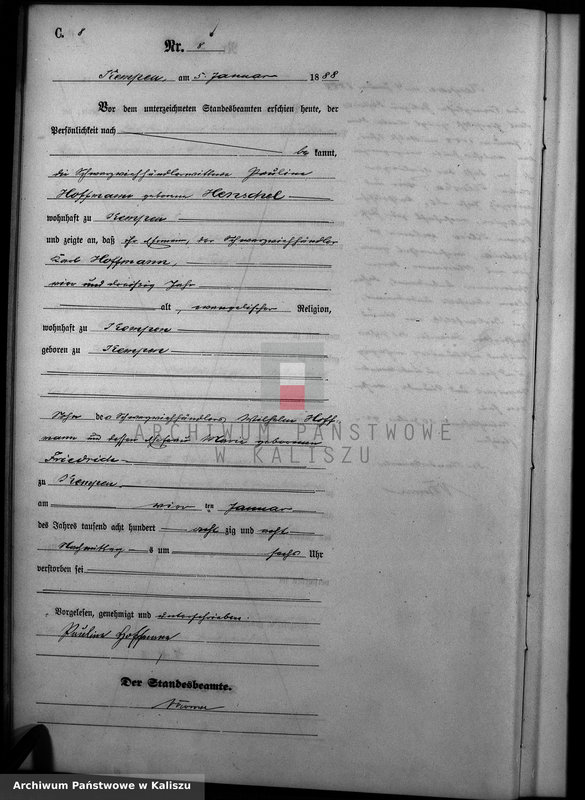 C. 8
Nr. 8
Kempen, am 5. Januar 1888
Vor dem unterzeichneten Standesbeamten erschien heute, der
Persönlichkeit nach
be kannt,
die Schwarzviehhändlerwittwe Pauline
Hoffmann geborene Henschel
wohnhaft zu Kempen
und zeigte an, daß ihr Ehemann, der Schwarzviehhändler
Karl Hoffmann,
vier und dreißig Jahr
alt, evangelischer Religion,
wohnhaft zu Kempen
geboren zu Kempen
Sohn des Schwarzviehhändlers Wilhelm Hoff-
mann und dessen Ehefrau Marie geborenen
Friedrich
zu Kempen
am vier ten Januar
des Jahres tausend acht hundert acht zig und acht
Nachmittag s um sechs Uhr
verstorben sei
Vorgelesen, genehmigt und unterschrieben.
Pauline Hoffmann
Der Standesbeamte.
ARCHIWUM PAŃSTWOWE
W KALISZU
Archiwum Państwowe w Kaliszu